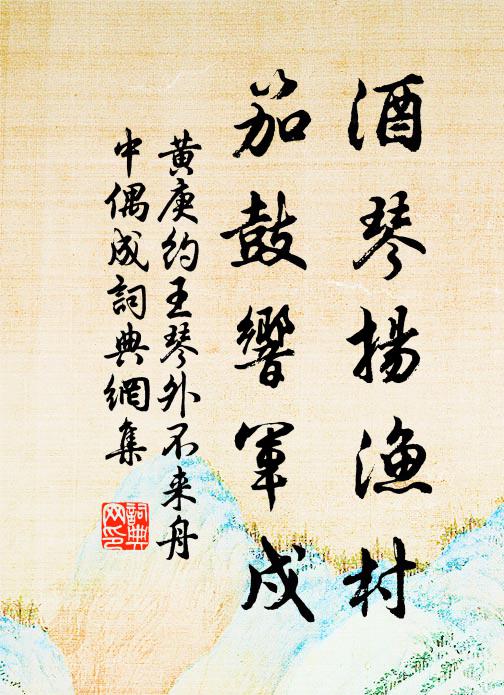 酒琴揚漁村
笳鼓響軍戍
黄庚約王琴外不来舟
中偶成詞典網集
詞典
网印